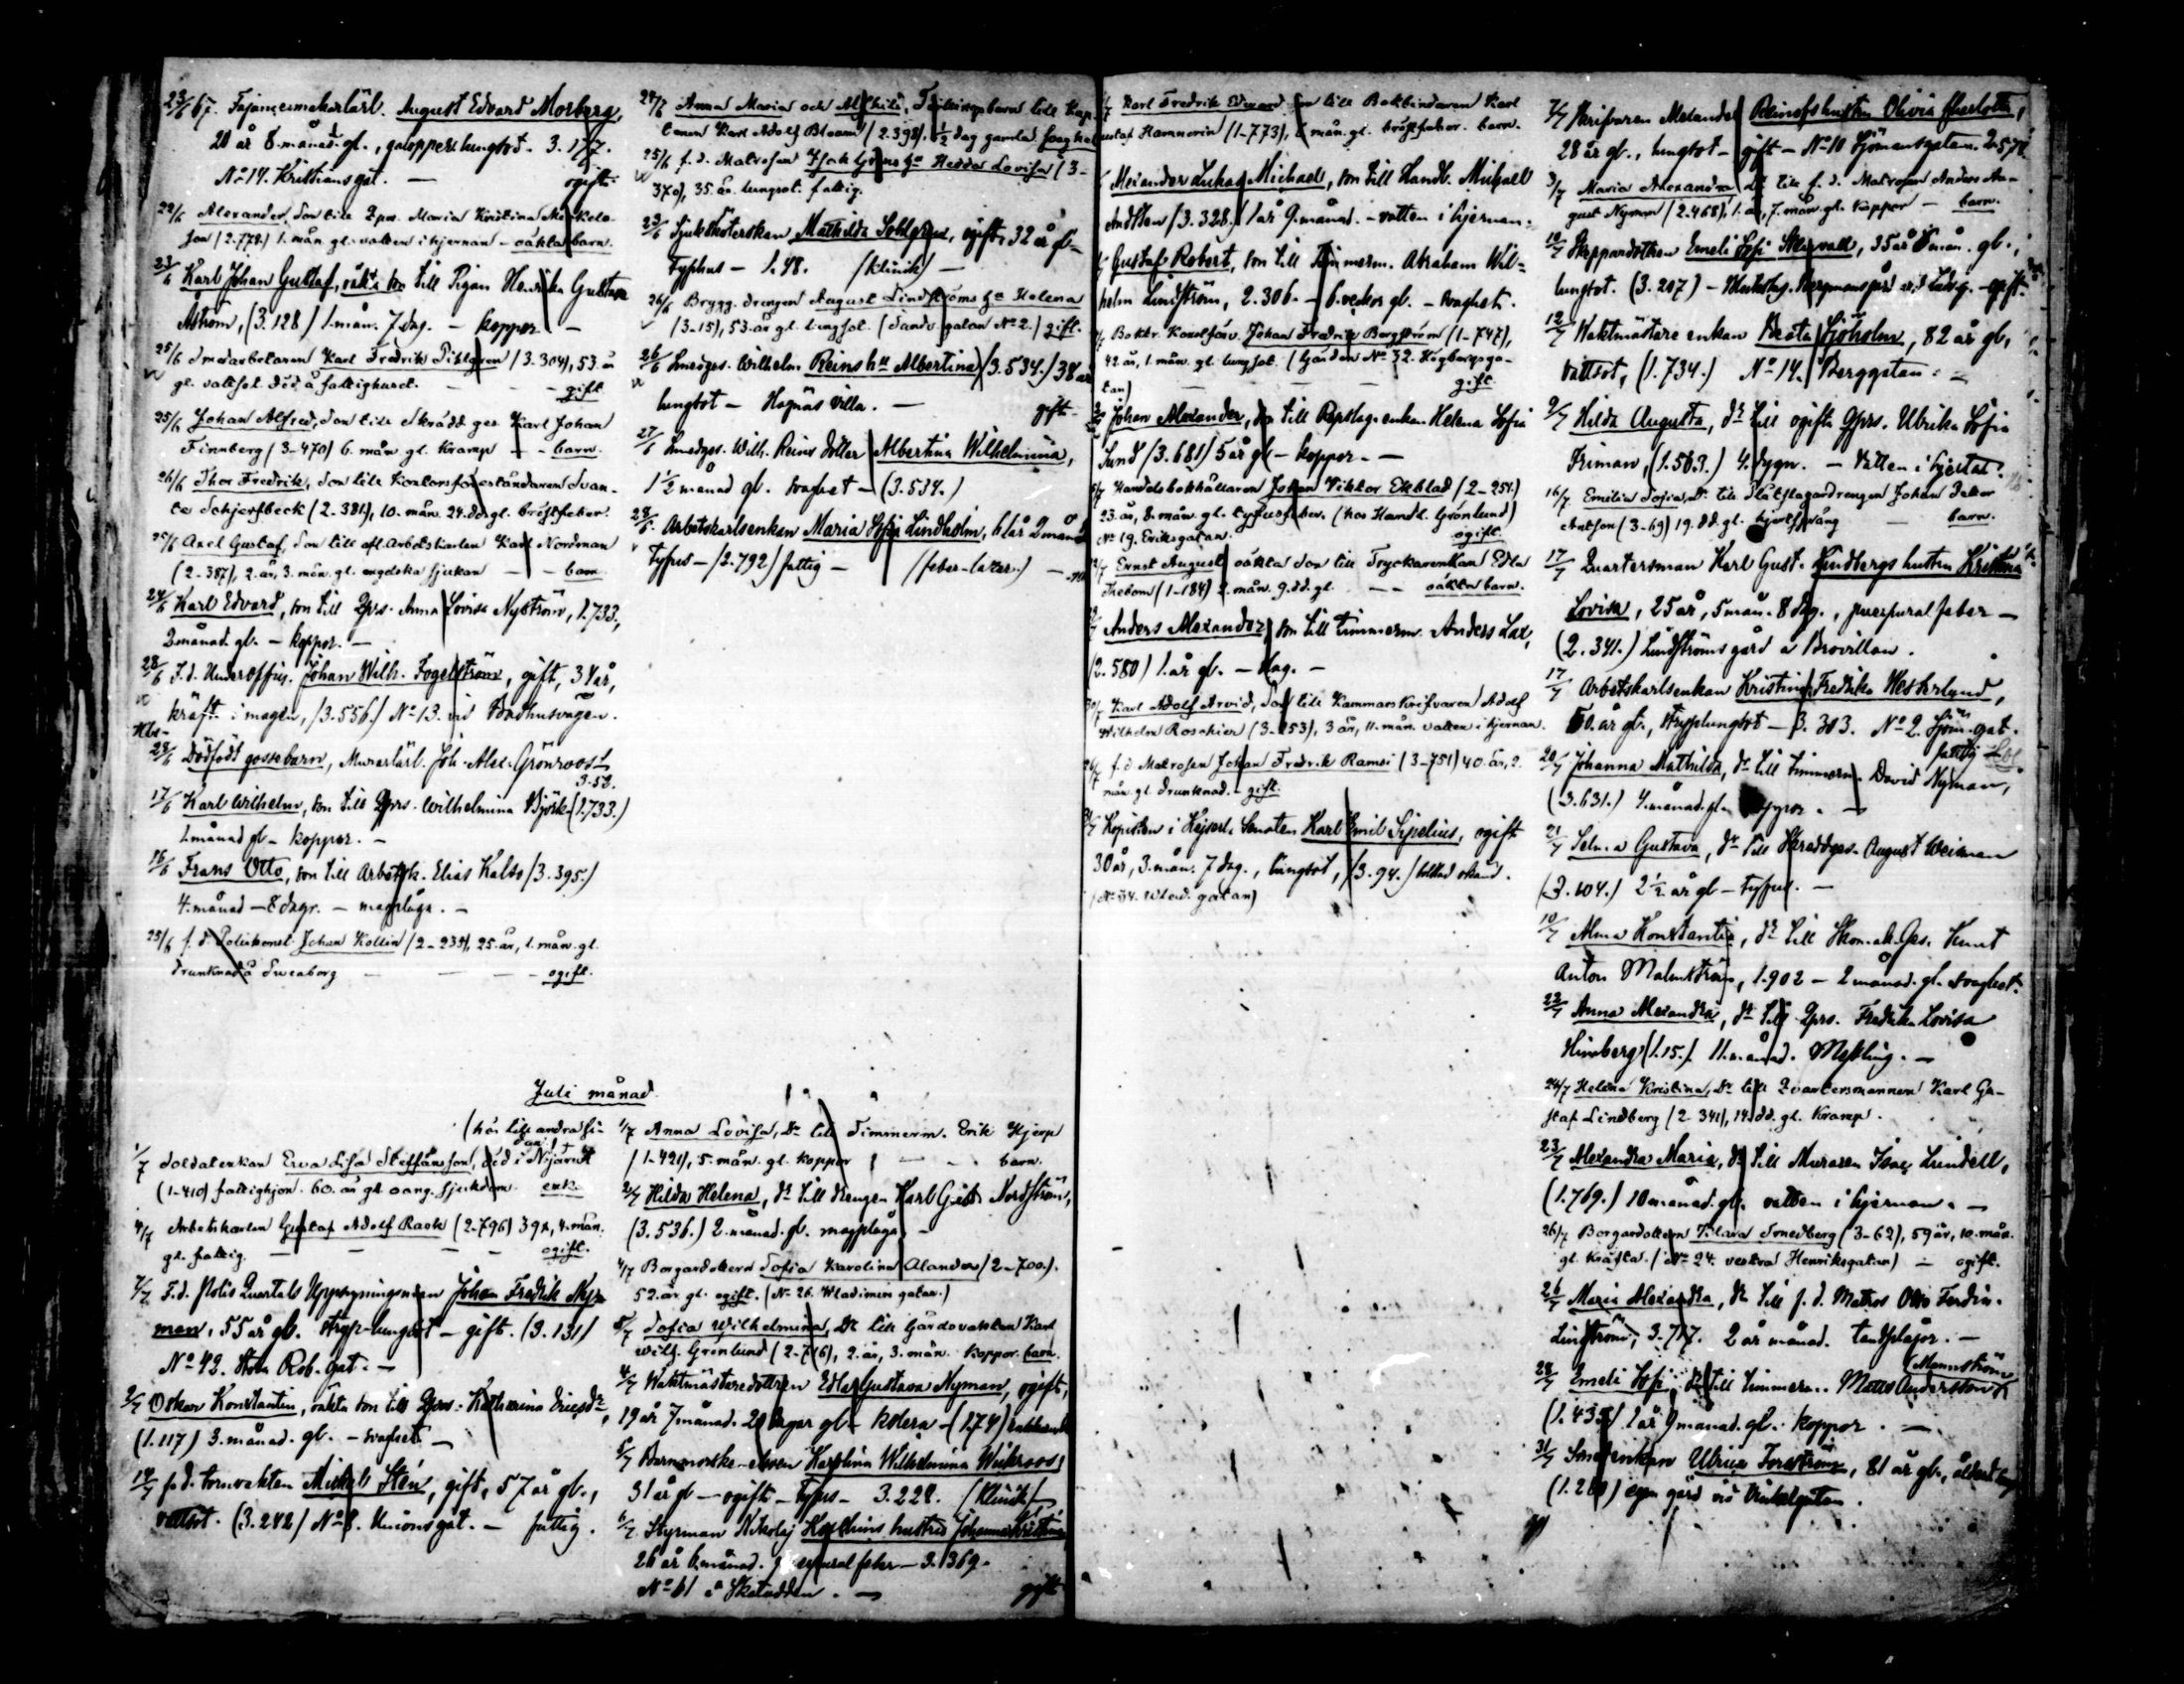 23/6 67. Fajansmakarlärl. August Edvard Morberg,
20 år 8. månad. gl., galopperl lungsot. 3. 177.
No 14. Kristiansgat. — ogift.
22/6 Alexander, son till Qprs. Maria Kristina
son (2.778.) 1. mån. gl. vatten i hjernan — oäkta barn.
23/6 Karl Johan Gustaf, oäkta son till Pigan Henrika Gustava
Åström, (3.128) 1. mån. 7. dag. — koppor —
25/6 Smedarbetaren Karl Fredrik Pihlgren (3.304), 53. år
gl. vattsot. död å fattighuset. — gift
25/6 Johan Alfred, son till Skrädd. ges. Karl Johan
Finnberg (3-470) 6. mån. gl. Kramp — barn.
26/6 Thor Fredrik, son till Kontorsföreståndaren Svan-
te Schjerfbeck (2.381), 10. mån. 24. dd. gl. bröstfeber.
25/6 Axel Gustaf, son till afl. Arbetskarlen Karl Nordman
(2-387), 2. år, 3. mån. gl. engelska sjukan — barn
24/6 Karl Edvard, son till Qprs. Anna Lovisa Nyström, 1.733,
2 månad. gl. — koppor. —
28/6 F.d. Underoffic. Johan Wilh. Fogelström, gift, 34 år,
kräft. i magen, (3.556.) No 13. vid Badhusvägen.
28/6 Dödfödt gossebarn, Murarlärl. Joh. Alex. Grönroos
3.53.
17/6 Karl Wilhelm, son till Qprs. Wilhelmina Björk (1.733.)
1. månad gl — koppor. —
16/6 Frans Otto, son till Arbetsk. Elias Kalts (3.395.)
4. månad — 8 dagr. — magplåga. —
25/6 f. d. Poliskonst. Johan Kollin (2-235), 25. år, 1. mån. gl.
drunknad å Sveaborg — ogift.
Juli månad
(hör till andra si-
dan!)
1/7 Soldatenkan Erva Lisa Steffansson, död i Nijärvi
(1-410) fattighjon. 60. år gl. oang. sjukdom. enk.
4/7 Arbetskarlen Gustaf Adolf Rask (2.796) 39 å, 4. mån.
gl. fattig. — ogift.
7/7 F. d. Polis Quartals Uppsyningsman Johan Fredrik Ny-
man, 55 år gl. stryp-lungsot — gift. (3.131)
No 42. Stora Rob. gat. —
2/7 Oskar Konstantin, oäkta son till Qprs. Katharina Ericsdr,
(1.117) 3. månad. gl. — svaghet —
14/7 f. d. tornvakten Mickel Stén, gift, 57 år gl.,
vattsot. (3.242) No 8. Unionsgat. — fattig.
24/6 Anna Maria och Tvillingsbarn till Kap-
tenen Karl Adolf Bloom (2.398). ½ dag gamla svaghet
25/6 f. d. Matrosen Isak Gröns ha Hedda Lovisa (3-
370), 35. år. lungsot. fattig.
23/6 Sjukskötersken Mathilda Sohlgren, ogift, 32 år gl.
Typhus — 1.48. (klinik) —
26/6 Brygg. drengen August Lindströms ha Helena
(3-15), 53. år gl. lungsot. (Sandvigatan No 2.) gift.
26/6 Smedges. Wilhelm Reins hu Albertina (3.534.) 38 år
lungsot — Hagnäs villa. — gift.
27/6 Smedges. Wilh. Reins dotter Albertina Wilhelmina,
1½ månad gl. svaghet — (3.534.)
28/6 Arbetskarlsenkan Maria Sofia Lindholm, 61 år 2 månad
Typus — (2.792) fattig — (feber-lazar.)
1/7 Anna Lovisa, Dr till Timmerm. Erik Hjerp
(1-421), 5. mån. gl. koppor — barn.
2/7 Hilda Helena, dr till drengen Karl Gust. Nordström,
(3.536.) 2. månad. gl. magplåga —
4/7 Borgardottern Sofia Karolina Alander (2-700).
52. år. gl. ogift. (No 26. Wladimirs gatan.)
5/7 Sofia Wilhelmina, Dr till Gårdsvakten Karl
Wilh. Grönlund (2-716), 2. år, 3. mån. koppor. barn.
4/7 Waktmästaredottren Edla Gustava Nyman, ogift,
19 år 7 månad. 20 dagar gl — kolera — (1.74)
5/7 Barnmorske-eleven Karolina Wilhelmina Wickroos,
31 år gl — ogift — Typus — 3.228. (klinik) —
6/7 Styrman Nikolaj hustru Johanna Kristina
26 år 6. månad. puerperal feber — 3.1369.
No 61 å Skatudden. — gift
Karl Fredrik Edward son till Bokbindaren Karl
Gustaf Hamnerin (1-773), 6 mån. gl. bröstfeber. barn.
Alexander Lukas Michael, son till Handl. Michael
(3.328.) 1 år 9. månad. — vatten i hjernan.
Gustaf Robert, son till Timmerm. Abraham Wil-
helm Lindström, 2.306. — 6. veckor gl. — svaghet.
Boktr. Konstförv. Johan Fredrik Bergström (1-747),
42. år, 1. mån. gl. lungsot. (Gården No 32. Högbergsga-
tan) — gift.
Johan Alexander, son till Repslag. enkan Helena Sofia
Sund (3.681) 5 år gl — koppor. —
Handelsbokhållaren Johan Viktor Ekblad (2-254.)
23. år, 8. mån. gl. typusfeber. (hos Handl. Grönlund)
No 19. Eriksgatan. ogift.
Ernst August oäkta son till Tryckarenkan Edla
Trebom (1-184) 2. mån. 9. dd. gl. — oäkta barn.
Anders Alexander, son till timmerm. Anders Lax,
(2.580) 1. år gl. — slag. —
30/7 Karl Adolf Arvid, son till Kammarskrifvaren Adolf
Wilhelm Roschier (3-253), 3 år, 11. mån. vatten i hjernan.
f. d. Matrosen Johan Fredrik Ramsi (3-751) 40. år, 2.
mån. gl. drunknad. — gift.
31/7 Kopisten i Kejserl. Senaten Karl Emil Sipelius, ogift
30 år, 3. mån. 7 dag., lungsot, (3.94.)
(No 34. Wlad. gatan)
7/7 Skrifvaren Alexander Reinofs hustru Olivia Charlotta,
28 år gl., lungsot — gift — No 10 Sjömansgatan. 2.578
9/7 Maria Alexandra Dr till f. d. Matrosen Anders Au-
gust Nyman (2.468), 1. år, 7. mån. gl. koppor — barn.
10/7 Skeppardottren Emeli Sofi 35 år 8 mån. gl.,
lungsot. (3.207) — gift.
12/7 Waktmästare enkan Beata Sjöholm, 82 år gl,
vattsot, (1.734.) No 14. Berggatan. —
9/7 Hilda Augusta, dr till ogifta Qprs. Ulrika Sofia
Friman, (1.563.) 4. dygn. — Vatten i hjertat.
16/7 Emilia Sofia, Dr till Plåtslagardrengen Johan Viktor
Axelson (3-69) 19. dd. gl. hjertsprång — barn.
17/7 Quartersman Karl Gust. Lindbergs hustru Kristina
Lovisa, 25 år, 5 mån. 8 dag., puerpural feber —
(2.341.) Lindströms gård å Brovillan.
17/7 Arbetskarlsenkan Kristina Fredrika Westerlund,
50. år gl., stryplungsot — 3.303. No 2. Sjöm. gat.
fattig
20/7 Johanna Mathilda, dr till timmerm. David Nyman,
(3.631.) 4. månad. gl — koppor. —
21/7 Selma Gustava, dr till Skräddges. August Weiman
(3.104.) 2½ år gl — Typus. —
10/7 Alma Konstantia, dr till Skomak. Ges. Knut
Anton Malmström, 1.902 — 2 månad. gl. svaghet.
22/7 Anna Alexandra, dr till Qprs. Fredrika Lovisa
Himberg (1.15.) 11. månad. Messling. —
24/7 Helena Kristina, Dr till Qvartersmannen Karl Gu-
staf Lindberg (2 341), 14. dd. gl. Kramp.
23/7 Alexandra Maria, dr till Muraren Isac Lindell,
(1.769.) 10 månad. gl. vatten i hjernan. —
26/7 Borgardottern Klara Smedberg (3-62), 59 år, 10. mån.
gl. Kräfta. (No 24. vestra Henriksgatan) — ogift.
26/7 Maria Alexandra, dr till f. d. Matros Otto Ferdin.
Lindström, 3.717. 2 år månad. tandplågor. —
28/7 Emeli Sofi, dr till timmerm. Matts Andersson
(Mannström
(1.435) 1 år 9 månad. gl. koppor. —
31/7 Ulrica Forsström, 81 år gl.,
(1.260) egen gård vid Vinkelgatan.